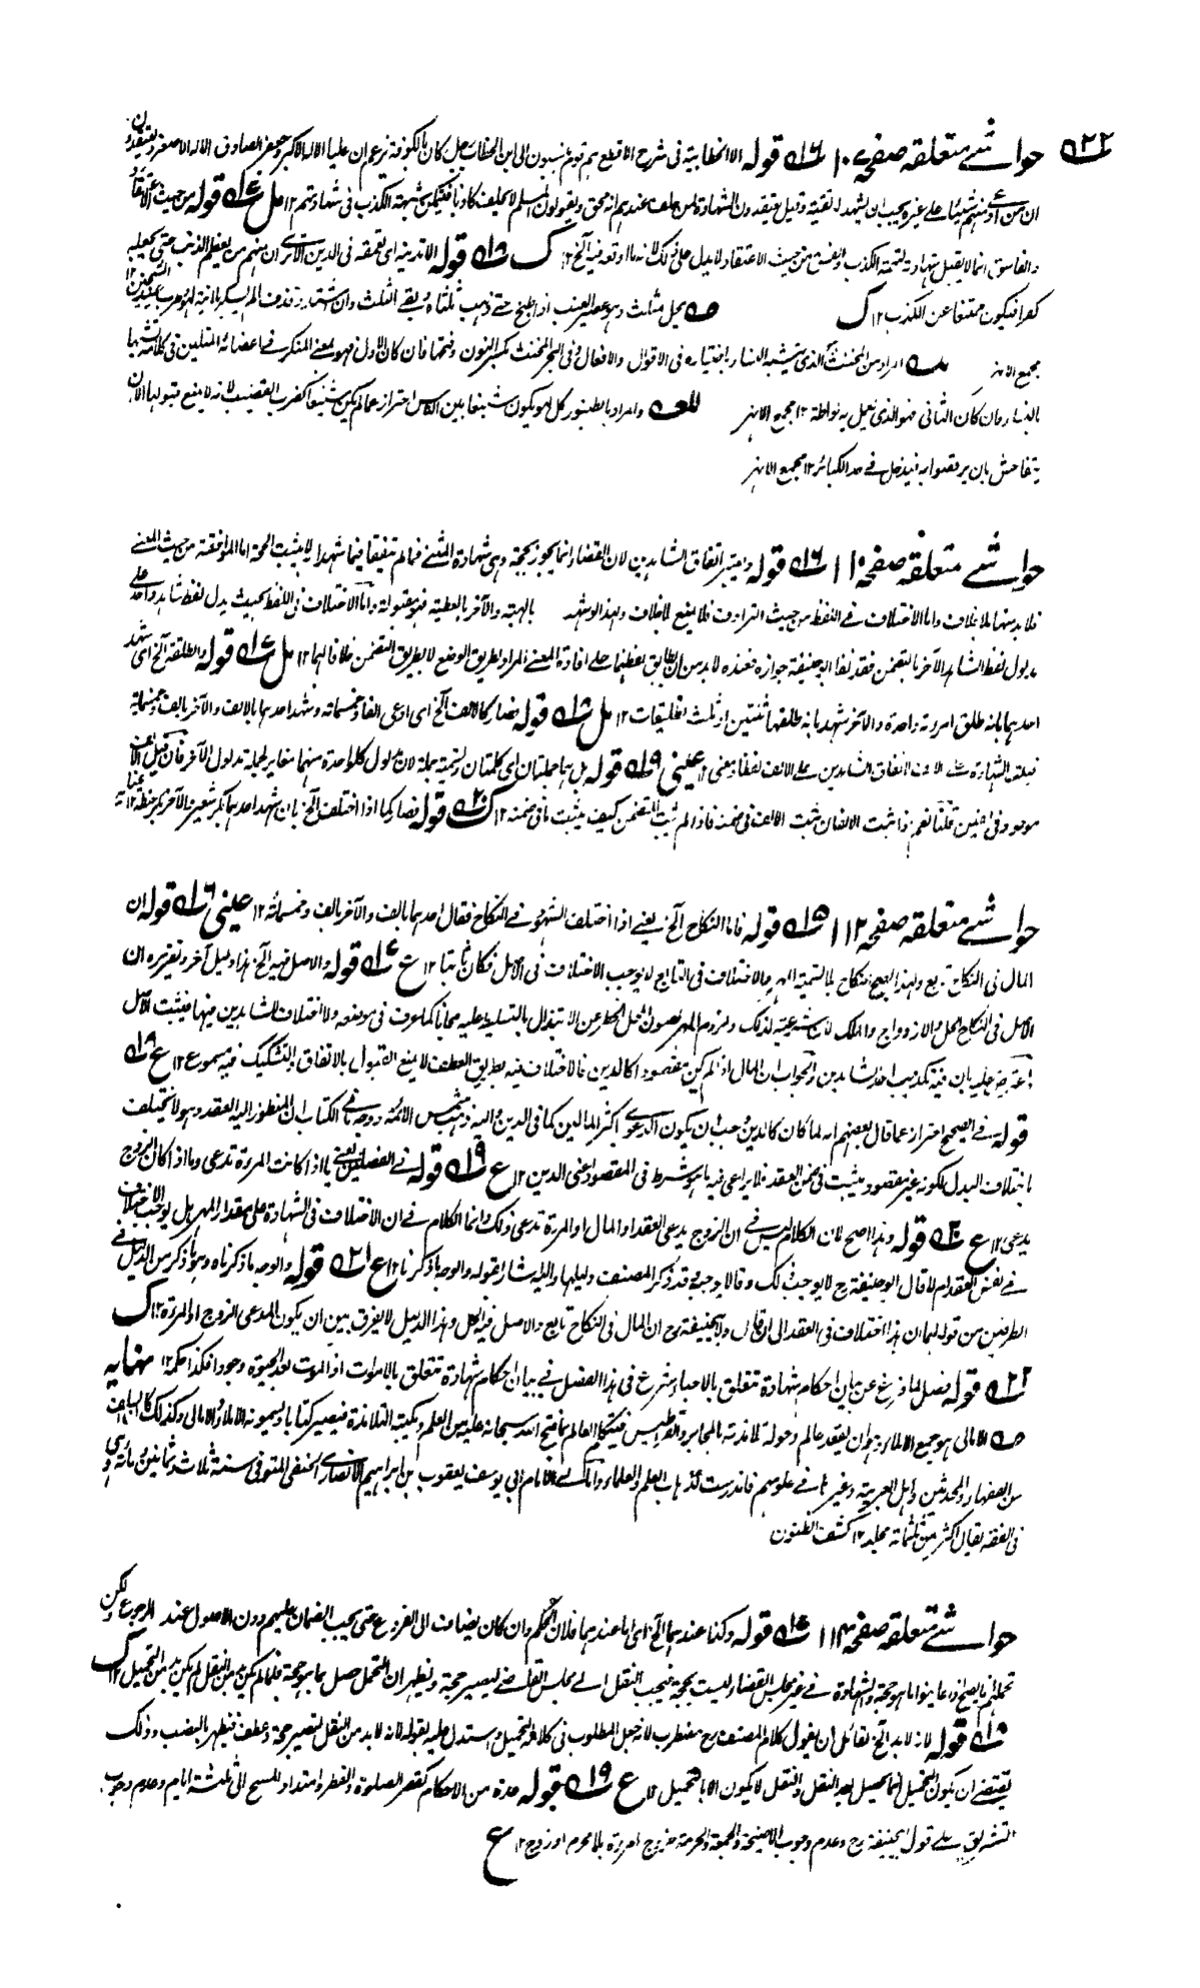 ۵۲۲ حواشے متعلقہ صفحہ ۱۰ ۱۶ قوله الا الخطابية فى شرح الاقطع هم قوم ينسبون الى ابن الخطاب رجل كان بالكوفة يزعم ان عليا الاله الاكبر وجعفر الصادق الاله الاصغر ويعتقدون
ان من ادعى منهم شيئا على غيره يجب ان يشهد له بقيته وقيل يعتقدون الشهادة لمن حلف عندهم انه محق ويقولون المسلم لا يحلف كاذبا فتمكن شبهة الكذب فى شهادتهم ۱۲ مل ۱۷ قوله من حيث الاعتقاد
والفاسق انما لا يقبل شهادته لتهمة الكذب والفسق من حيث الاعتقاد لا يدل على ذلك لانه ما اوقعه فيه الخ ۱۲ ك ۱۸ قوله الا تدينه اى تعمقه فى الدين الا ترى ان منهم من يعظم الذنب حتى يجعله
كفرا فيكون ممتنعا عن الكذب ۱۲ ك صه يحل مثلث وهو عصير العنب اذا طبخ حتى ذهب ثلثاه وبقى الثلث وان اشتد
مجمع الانهر المراد من المخنث الذى يتشبه بالنساء باختياره فى الاقوال والافعال وفى البحر المخنث بكسر النون وفتحها فان كان الاول فهو بمعنى المنكسر فى اعضائه المتلين فى كلامه تشبها
بالنساء وان كان الثانى فهو الذى يعمل به لواطة ۱۲ مجمع الانهر للعه والمراد بالطنبور كل لهو يكون شنيعا بين الناس احتراز عما لم يكن شنيعا كضرب القضيب لانه لا يمنع قبولها الا ان
يتفاحش بان يرقصوا به فيدخل فى حد الكبائر ۱۲ مجمع الانهر
حواشے متعلقہ صفحہ ۱۱ ۱۶ قوله ويعتبر اتفاق الشاهدين لان القضاء انما يجوز بحجة وهى شهادة المثنى فما لم تتفقا فيما شهدا لا يثبت الحجة اما الموافقة من حيث المعنى
فلا بد منها بلا خلاف واما الاختلاف فى اللفظ من حيث الترادف فلا يمنع بلا خلاف ولهذا لو شهد بالهبة والآخر بالعطية فهو مقبولة واما الاختلاف فى اللفظ بحيث يدل لفظ شاهد واحد على
مدلول لفظ الشاهد الآخر بالتضمن فقد نفى ابو حنيفة جوازه فعنده لا بد من ان يطابق لفظهما على افادة المعنى المراد بطريق الوضع لا بطريق التضمن خلافا لهما ۱۲ مل ۱۷ قوله والطلقة الخ اى شهد
احدهما بانه طلق امرءته واحدة والآخر شهد بانه طلقها ثنتين او ثلث تطليقات ۱۲ مل ۱۸ قوله فصار كالالف الخ اى ادعى الفا وخمسمائة وشهد احدهما بالالف والآخر بالف وخمسمائة
قبلت الشهادة على الالف لاتفاق الشاهدين على الالف لفظا ومعنى ۱۲ عينى ۱۹ قوله بل هما جملتان اى كلمتان ولتسمية جملة لان مدلول كل واحدة منهما مغاير لجملة مدلول الآخر فان قيل
موجود فى الفين قلنا نعم اذا ثبت الالفان ثبت الالف فى ضمنه فاذا لم يثبت المتضمن كيف يثبت ما فى ضمنه ۱۲ ك ۲۰ قوله فصار كما اذا اختلف الخ بان شهد احدهما بكر شعير والآخر بكر حنطة ۱۲
حواشے متعلقہ صفحہ ۱۲ ۱۵ قوله فاما النكاح الخ يعنى اذا اختلف الشهود فى النكاح فقال احدهما بالف والآخر بالف وخمسمائة ۱۲ عينى ۱۶ قوله ان
المال فى النكاح تابع ولهذا يصح النكاح بلا تسمية المهر والاختلاف فى التابع لا يوجب الاختلاف فى الاصل فكان ثابتا ۱۲ ع ۱۷ قوله والاصل فيه الخ هذا دليل آخر وتقريره ان
الاصل فى النكاح الحل والازدواج والملك لان شرعيته لذلك ولزوم المهر لصون المحل الخطير عن الابتذال بالتسليط عليه مجانا كما عرف فى موضعه ولا اختلاف للشاهدين فيها فيثبت الاصل
اعترض عليه بان فيه تكذيب احد الشاهدين والجواب ان المال اذا لم يكن مقصودا كالدين فالاختلاف فيه بطريق العطف لا يمنع القبول بالاتفاق والتشكيك فيه مسموع ۱۲ ع ۱۸
قوله فى الصحيح احتراز عما قال بعضهم انه لما كان كالدين وجب ان يكون الدعوى اكثر المالين كما فى الدين واليه ذهب شمس الائمة ووجه ما فى الكتاب ان المنظور اليه العقد وهو لا يختلف
باختلاف البدل لكونه غير مقصود ويثبت فى ضمن العقد فلا يراعى فيه ما هو شرط فى المقصود اعنى الدين ۱۲ ع ۱۹ قوله فى الفصلين يعنى ما اذا كانت المرءة تدعى وما اذا كان الزوج
يدعى ۱۲ ع ۲۰ قوله وهذا اصح لان الكلام ليس فى ان الزوج يدعى العقد او المال او المرءة تدعى ذلك وانما الكلام فى ان الاختلاف فى الشهادة على مقدار المهر هل يوجب الاختلاف
فى نفس العقد ام لا قال ابو حنيفة رح لا يوجب ذلك وقالا يوجبه قد ذكر المصنف دليلهما واليه اشار بقوله والوجه ما ذكرنا ۱۲ ع ۲۱ قوله والوجه ما ذكرناه وهو ما ذكر من الدليل فى
الطرفين من قوله لهما ان هذا اختلاف فى العقد الى ان قال ولابى حنيفة رح ان المال فى النكاح تابع والاصل فيه الحل وهذا الدليل لا يفرق بين ان يكون المدعى الزوج او المرءة ۱۲ ك
۲۲ قوله فصل لما فرغ عن بيان احكام شهادة تتعلق بالاحياء شرع فى هذا الفصل فى بيان احكام شهادة تتعلق بالاموات اذ الموت بعد الحيوة وجودا فكذا حكما ۱۲ نهاية
صه الامالى هو جمع الاملاء وهو ان يقعد عالم وحوله تلامذته بالمحابر والقراطيس فيتكلم العالم بما فتح الله سبحانه عليه من العلم ويكتبه التلامذة فيصير كتابا ويسمونه الاملاء والامالى وكذلك كان السلف
من الفقهاء والمحدثين واهل العربية وغيرها فى علومهم فاندرست لذهاب العلم والعلماء وامالى الامام ابى يوسف يعقوب بن ابراهيم الانصارى الحنفى المتوفى سنة ثلاث وثمانين ومائة وهى
فى الفقه يقال اكثر من ثلثمائة مجلد ۱۲ كشف الظنون
حواشے متعلقہ صفحہ ۱۳ ۱۷ قوله وكذا عندهما الخ اى اما عندهما فلان الحكم وان كان يضاف الى الفروع حتى يجب الضمان عليهم دون الاصول عند الرجوع ولكن
تحملهم انما يصح اذا عاينوا ما هو حجة والشهادة فى غير مجلس القضاء ليست بحجة فيجب النقل الى مجلس القاضى ليصير حجة ويظهر ان التحمل حصل بما هو حجة فلما لم يكن بد من النقل لم يكن بد من التحميل ۱۲ ك
۱۸ قوله لانه لا بد الخ لقائل ان يقول كلام المصنف رح مضطرب لانه جعل المطلوب فى كلامه التحميل واستدل عليه بقوله لانه لا بد من النقل لتصير حجة وعطف فيظهر بالنصب وذلك
يقتضى ان يكون التحميل انما يحصل بعد النقل والنقل لا يكون الا بالتحميل ۱۲ ع ۱۹ قوله عدة من الاحكام كقصر الصلوة والفطر وامتداد المسح الى ثلثة ايام وعدم وجوب
التشريق على قول ابى حنيفة رح وعدم وجوب الاضحية والجمعة وحرمة خروج امرءة بلا محرم او زوج ۱۲ ع